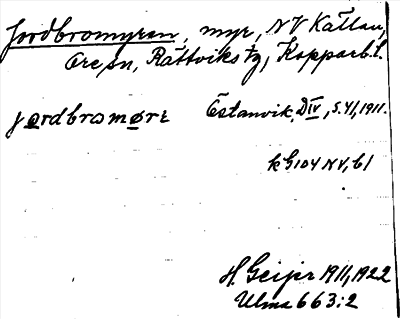 Jordbromyren, myr, NV Kallan,
Ore sn, Rättviks tg, Kopparb. l.
jordbromøre Östanvik, D IV, s. 41, 1911.
k G 104 NV, b 1
H. Geijer 1911, 1922
Ulma 663:2